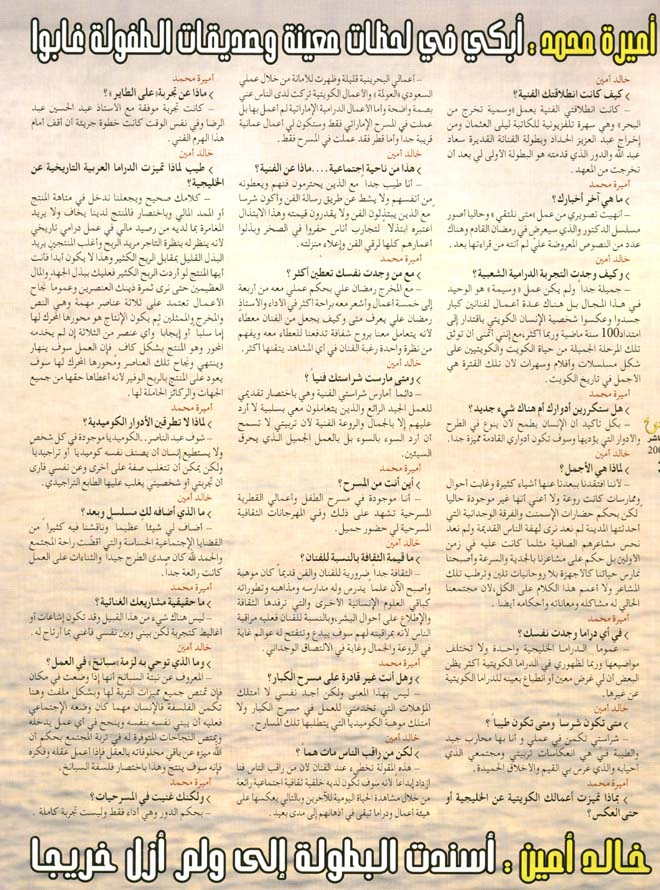 أميرة محمد : أبكي في لحظات معينة وصديقات الطفولة غابوا
خالد أمين
> كيف كانت انطلاقتك الفنية؟
– كانت انطلاقتي الفنية بعمل «وسمية تخرج من
البحر» وهي سهرة تلفزيونية للكاتبة ليلى العثمان ومن
إخراج عبد العزيز الحداد وبطولة الفنانة القديرة سعاد
عبد الله والدور الذي قدمته هو البطولة الأولى لي بعد أن
تخرجت من المعهد.
أميرة محمد
> ما هي آخر أخبارك؟
– انهيت تصويري من عمل «متى نلتقي» وحاليا أصور
مسلسل الدكتور والذي سيعرض في رمضان القادم وهناك
عدد من النصوص المعروضة علي لم أنته من قراءتها بعد.
خالد أمين
> وكيف وجدت التجربة الدرامية الشعبية؟
– جميلة جداً ولم يكن عمل «وسيمة» هو الوحيد
في هذا المجال بل هناك عدة أعمال لفنانين كبار
جسدوا وعكسوا شخصية الإنسان الكويتي باقتدار إلى
امتداد 100 سنة ماضية وربما أكثر، مع إنني أتمنى أن توثق
تلك المرحلة الجميلة من حياة الكويت والكويتيين على
شكل مسلسلات وافلام وسهرات لأن تلك الفترة هي
الأجمل في تاريخ الكويت.
أميرة محمد
> هل ستكررين أدوارك أم هناك شيء جديد؟
– بكل تاكيد أن الإنسان يطمح لأن ينوع في الطرح
والأدوار التي يؤديها وسوف تكون أدواري القادمة مميزة جداً.
خالد أمين
> لماذا هي الأجمل؟
– لأننا افتقدنا بعدنا عنها أشياء كثيرة وغابت أحوال
وممارسات كانت روعة ولا أعني أنها غير موجودة حاليا
لكن بحكم حضارات الإسمنت والفرقة الوجدانية التي
أحدثتها المدينة لم نعد نرى لهفة الناس القديمة ولم نعد
نحس بمشاعرهم الصافية مثلما كانت عليه في زمن
الأولين بل حكم على مشاعرنا بالجدية والسرعة وأصبحنا
نمارس حياتنا كالأجهزة بلا روحانيات تلين وترطب تلك
المشاعر ولا أعمم هذا الكلام على الكل، لأن مجتمعنا
الحالي له مشاكله ومعاناته وأحكامه أيضاً.
أميرة محمد
> في أي دراما وجدت نفسك؟
– عموماً الدراما الخليجية واحدة ولا تختلف
مواضيعها وربما لظهوري في الدراما الكويتية أكثر يظن
البعض أن لي غرض معين أو انطباع بعينه للدراما الكويتية
عن غيرها.
خالد أمين
> متى تكون شرساً ومتى تكون طيباً؟
– شراستي تكمن في عملي و أنا بها محارب جيد
والطيبة في هي انعكاسات تربيتي ومجتمعي الذي
أحيابه والذي غرس بي القيم والأخلاق الحميدة.
أميرة محمد
> بماذا تميزت أعمالك الكويتية عن الخليجية أو
حتى العكس؟
– أعمالي البحرينية قليلة وظهرت للأمانة من خلال عملي
السعودي «العولمة» والأعمال الكويتية تركت لدى الناس عني
بصمة واضحة وأما الأعمال الدرامية الإماراتية لم أعمل بها بل
عملت في المسرح الإماراتي فقط وستكون لي أعمال عمانية
قريبة جداً وأما قطر فقد عملت في المسرح فقط.
خالد أمين
> هذا من ناحية إجتماعية....ماذا عن الفنية؟
– أنا طيب جداً مع الذين يحترمون فنهم ويعطونه
من أنفسهم ولا يشط عن طريق رسالة الفن وأكون شرساً
مع الذين يبتذلون الفن ولا يقدرون قيمته وهذا الابتذال
اعتبره ابتذلا لتجارب أناس حفروا في الصخر وبذلوا
أعمارهم كلها لرقي الفن وإعلاء منزلته.
أميرة محمد
> مع من وجدت نفسك تعطين أكثر؟
– مع المخرج رمضان علي بحكم عملي معه من أربعة
إلى خمسة أعمال وأشعر معه براحة أكثر في الأداء والاستاذ
رمضان علي يعرف متى وكيف يجعل من الفنان معطاء
لانه يتعامل معنا بروح شفافة تدفعنا للعطاء معه ويفهم
من نظرة واحدة رغبة الفنان في أي المشاهد يتقنها أكثر.
خالد أمين
> ومتى مارست شراستك فنياً؟
– دائماً أمارس شراستي الفنية وهي باختصار تقديمي
للعمل الجيد الرائع والذين يتعاملون معي بسلبية لا أرد
عليهم إلا بالجمال والروعة الفنية لأن تربيتي لا تسمح
أن ارد السوء بالسوء بل بالعمل الجميل الذي يحرق
السيئين.
أميرة محمد
> أين أنت من المسرح؟
– أنا موجودة في مسرح الطفل وأعمالي القطرية
المسرحية تشهد على ذلك وفي المهرجانات الثقافية
المسرحية لي حضور جميل.
خالد أمين
> ما قيمة الثقافة بالنسبة للفنان؟
– الثقافة جداً ضرورية للفنان والفن قديماً كان موهبة
وأصبح الآن علما يدرس وله مدارسه ومذاهبه وتطوراته
كباقي العلوم الإنسانية الأخرى والتي ترفدها الثقافة
والإطلاع على أحوال البشر، وبالنسبة للفنان فعليه مراقبة
الناس لأنه بمراقبته لهم سوف يبدع وتتفتح له عوالم غاية
في الروعة والجمال وغاية في الالتصاق الوجداني.
أميرة محمد
> وهل أنت غير قادرة على مسرح الكبار؟
– ليس بهذا المعنى ولكن أجد نفسي لا امتلك
المؤهلات التي تخدمني للعمل في مسرح الكبار ولا
أمتلك موهبة الكوميديا التي يتطلبها تلك المسارح.
خالد أمين
> لكن من راقب الناس مات هما ؟
– هذه المقولة تخطيء عند الفنان لأن من راقب الناس فنا
ازداد إبداعاً لانه سوف تكون لديه خلفية ثقافية اجتماعية رائعة
من خلال مشاهدة الحياة اليومية للآخرين وبالتالي يعكسها على
هيئة أعمال ودراما تبقى في أذهانهم إلى مدى بعيد.
أميرة محمد
> ماذا عن تجربة «على الطاير» ؟
– كانت تجربة موفقة مع الأستاذ عبد الحسين عبد
الرضا وفي نفس الوقت كانت خطوة جريئة أن أقف أمام
هذا الهرم الفني.
خالد أمين
> طيب لماذا تميزت الدراما العربية التاريخية عن
الخليجية؟
– كلامك صحيح ويجعلنا ندخل في متاهة المنتج
أو الممد المالي وباختصار فالمنتج لدينا يخاف ولا يريد
المغامرة بما لديه من رصيد مالي في عمل درامي تاريخي
لأنه ينظر له بنظرة التاجر مريد الربح وأغلب المنتجين يريد
البذل القليل بمقابل الربح الكثير وهذا لا يكون أبداً فأنت
أيها المنتج لو أردت الربح الكثير فعليك ببذل الجهد والمال
العظيمين حتى نرى ثمرة دينك العنصرين وعموما نجاح
الأعمال تعتمد على ثلاثة عناصر مهمة وهي النص
والمخرج والممثلين ثم يكون الإنتاج هو محورها المحرك لها
إما سلبا أو إيجابا وأي عنصر من الثلاثة إن لم يخدمه
المحور وهو المنتج بشكل كاف فإن العمل سوف ينهار
وينتهي ونجاح تلك العناصر ومحورها المحرك لها سوف
يعود على المنتج بالربح الوفير لأنه اعطاها حقها من جميع
الجهات والركائز الحاملة لها.
أميرة محمد
> لماذا لا تطرقين الأدوار الكوميدية؟
– شوف عبد الناصر..الكوميديا موجودة في كل شخص
ولا يستطيع إنسان أن يصنف نفسه كوميديا أو تراجيديا
ولكن يمكن أن تتغلب صفة على أخرى وعن نفسي فأرى
أن تجربتي أو شخصيتي يغلب عليها الطابع التراجيدي.
خالد أمين
> ما الذي أضافه لك مسلسل وبعد؟
– أضاف لي شيئاً عظيماً وناقشنا فيه كثيراً من
القضايا الإجتماعية الحساسة والتي أقضّت راحة المجتمع
والحمد لله كان صدى الطرح جيداً والثناءات على العمل
كانت رائعة جداً.
أميرة محمد
> ما حقيقية مشاريعك الغنائية؟
– ليس هناك شيء من هذا القبيل وقد تكون إشاعات أو
أغاليط كتجربة لكن بيني وبين نفسي فأغني بما أرتاح له.
خالد أمين
> وما الذي توحي به لزمة «سبانخ» في العمل؟
– المعروف عن نبتة السبانخ أنها إذا وضعت في مكان
فإن تمتص جميع مميزات التربة لها وبشكل ملفت وهنا
تكمن الفلسفة فالإنسان مهما كان وضعه الإجتماعي
فعليه ان يبني نفسه بنفسه وينجح في أي عمل يدخله
ويمتص النجاحات المتوفرة له في تربة المجتمع بحكم أن
الله ميزه عن باقي مخلوقاته بالعقل فإذا أعمل عقله وفكره
فإنه سوف ينتج وهذا باختصار فلسفة السبانخ.
أميرة محمد
> ولكنك غنيت في المسرحيات؟
– بحكم الدور وهي أداء فقط وليست تجربة كاملة .
خالد أمين : أسندت البطولة إلى ولم أزل خريجا